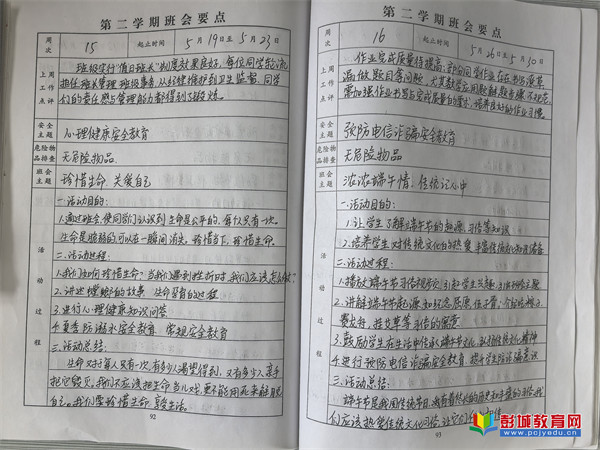 第二学期班会要点
周次 15 起止时间 5月19日至5月23日
上周工作点评
班级实行“值日班长”制度效果良好，每位同学轮流
担任班长管理班级事务，从纪律维护到卫生监督，同学
们的责任感与管理能力都得到了锻炼。
安全主题 心理健康安全教育
危险物品排查 无危险物品
班会主题 珍惜生命 关爱自己
活动过程
一.活动目的：
1.通过班会，使同学们认识到生命是公平的，每个人只有一次，
生命是脆弱的可以在一瞬间消失，珍惜当下，珍惜生命。
二.活动过程：
1.我们如何珍惜生命？当我们遇到挫折时，我们应该怎么做？
2.讲述 的故事，生命孕育的过程
3.进行心理健康知识问答
4.夏季防溺水安全教育、常规安全教育
三.活动总结：
生命对于每人只有一次，有多少人渴望得到，又有多少人亲手
把它毁灭。我们不应该把生命当儿戏，更不能用死来解脱自
己。我们要珍惜生命，享受生活。
92
第二学期班会要点
周次 16 起止时间 5月26日至5月30日
上周工作点评
作业完成质量待提高，部分同学作业存在书写潦草、
漏做题目等问题，尤其数学应用题解题步骤不规范，
需加强作业书写与完成质量的要求，培养良好的作业习惯。
安全主题 预防电信诈骗安全教育
危险物品排查 无危险物品
班会主题 浓浓端午情，传统记心中
活动过程
一.活动目的：
1.让学生了解端午节的起源、习俗等知识
2.培养学生对传统文化的热爱，
二.活动过程：
1.播放端午节习俗视频，引起学生兴趣，
2.讲解端午节起源和纪念屈原、伍子胥，介绍吃粽子
赛龙舟、挂艾草等习俗的寓意
3.鼓励学生在生活中传承端午文化，
4.进行预防电信诈骗安全教育，提升学生防诈骗意识
三.活动总结：
端午节是我国传统节日，
们应该热爱传统文化习俗，
93
彭城教育网
www.pcjyedu.cn